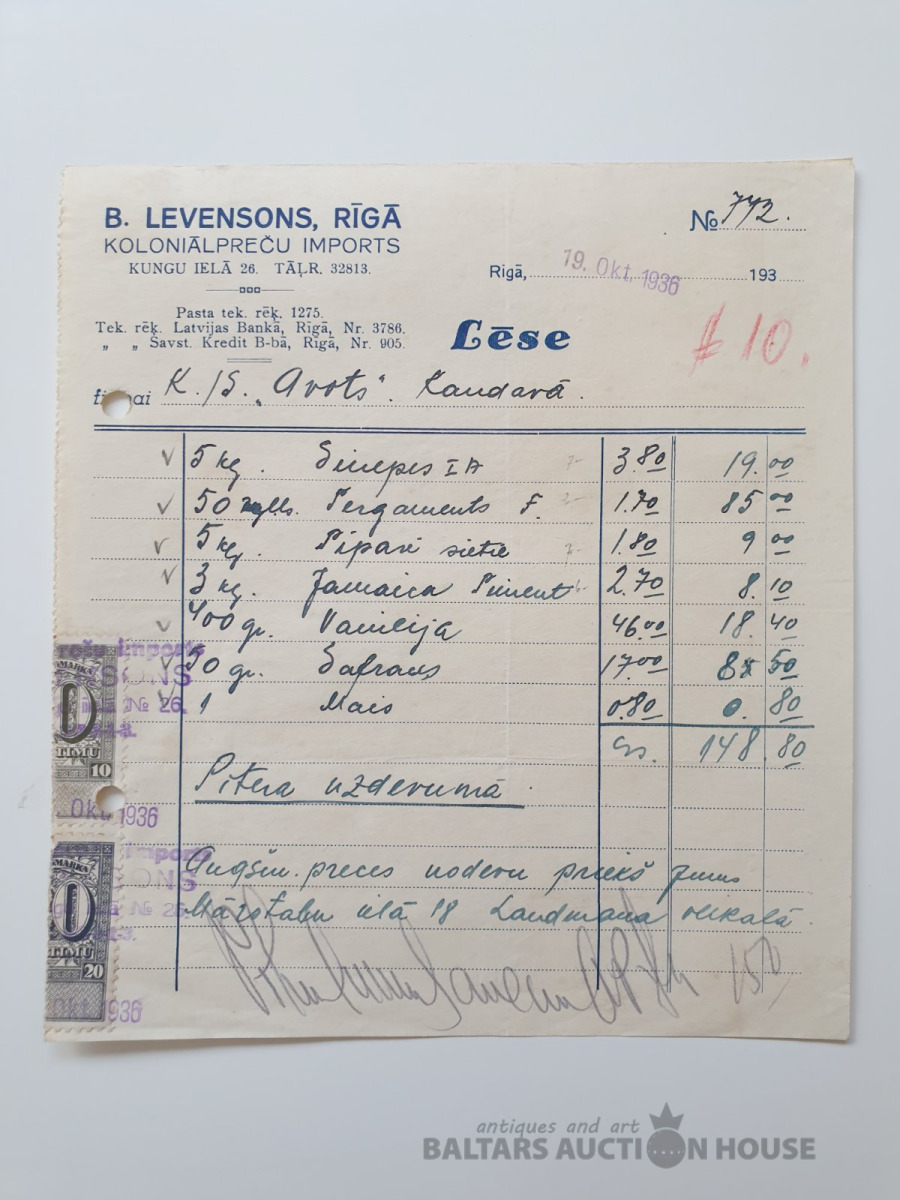 B. LEVENSONS, RĪGĀ
KOLONIĀLPREČU IMPORTS
KUNGU IELĀ 26. TĀĻR. 32813.
№ 772.
Rīgā, 19. Okt. 1936 193
Pasta tek. rēķ. 1275.
Tek. rēķ. Latvijas Bankā, Rīgā, Nr. 3786.
„ „ Savst. Kredit B-bā, Rīgā, Nr. 905.
Lēse
10.
K./S. „Avots“. Kandavā.
5 kg. Sinepes IA 3.80 19.00
50 Pergaments F. 1.70 85 00
5 kg. Pipari sietie 1.80 9 00
3 kg. Jamaica Piment 2.70 8.10
400 gr. Vanilija 46.00 18.40
50 gr. Safrans 17.00 8 50
1 Mais 0.80 0.80
148.80
Pitera uzdevumā
Augšm. preces nodevu priekš Jums
Mārstaļu ielā 18 Landmana veikalā.
Imports
SONS
№ 26.
TIMU
10
Okt. 1936
Imports
SONS
№ 26.
TIMU
20
Okt. 1936
antiques and art
BALTARS AUCTION HOUSE